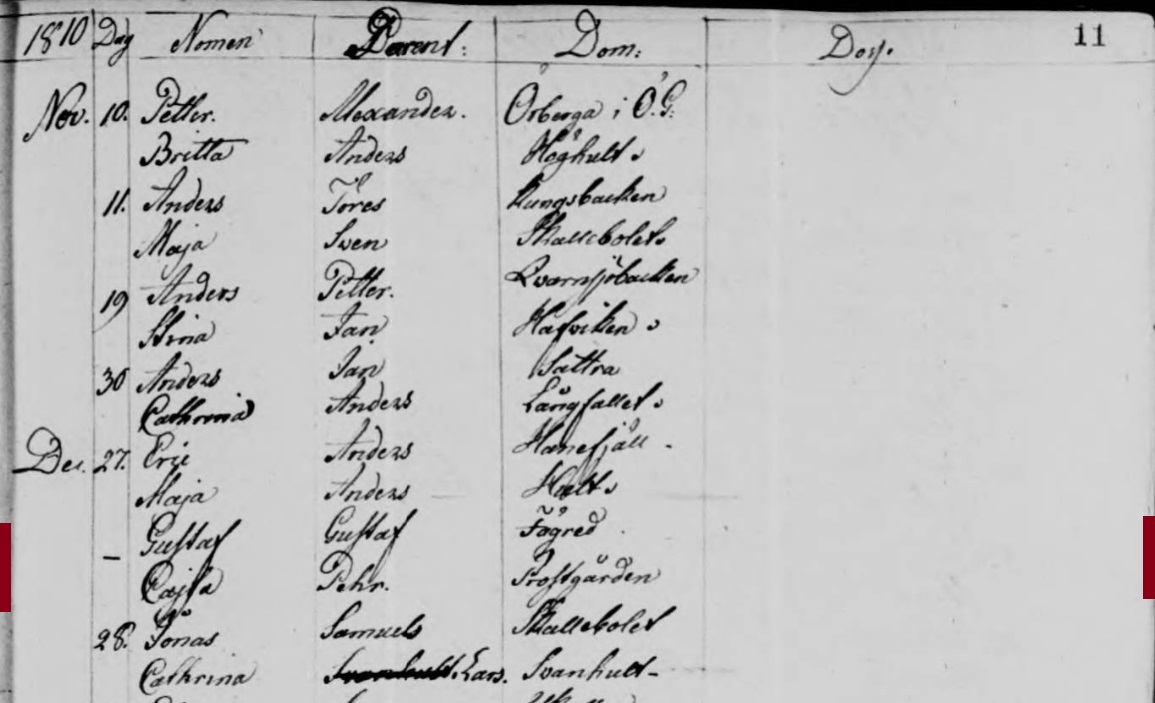 1810 Dag Nomen Parent: Dom: Dos. 11
Nov. 10. Petter. Alexander. Örberga i Ö.G.
Britta Anders Höghult
11. Anders Töres Kungsbacken
Maja Swen Skallebolet
19 Anders Petter. Qvarnsjöbacken
Stina Jan Hafviken
30 Anders Jan Sättra
Cathrina Anders Långfallet
Dec. 27. Eric Anders Hanefjäll
Maja Anders Hult
— Gustaf Gustaf Fågred
Cajsa Pehr. Prostgården
28. Jonas Samuels Skallebolet
Cathrina Lars. Svanhult